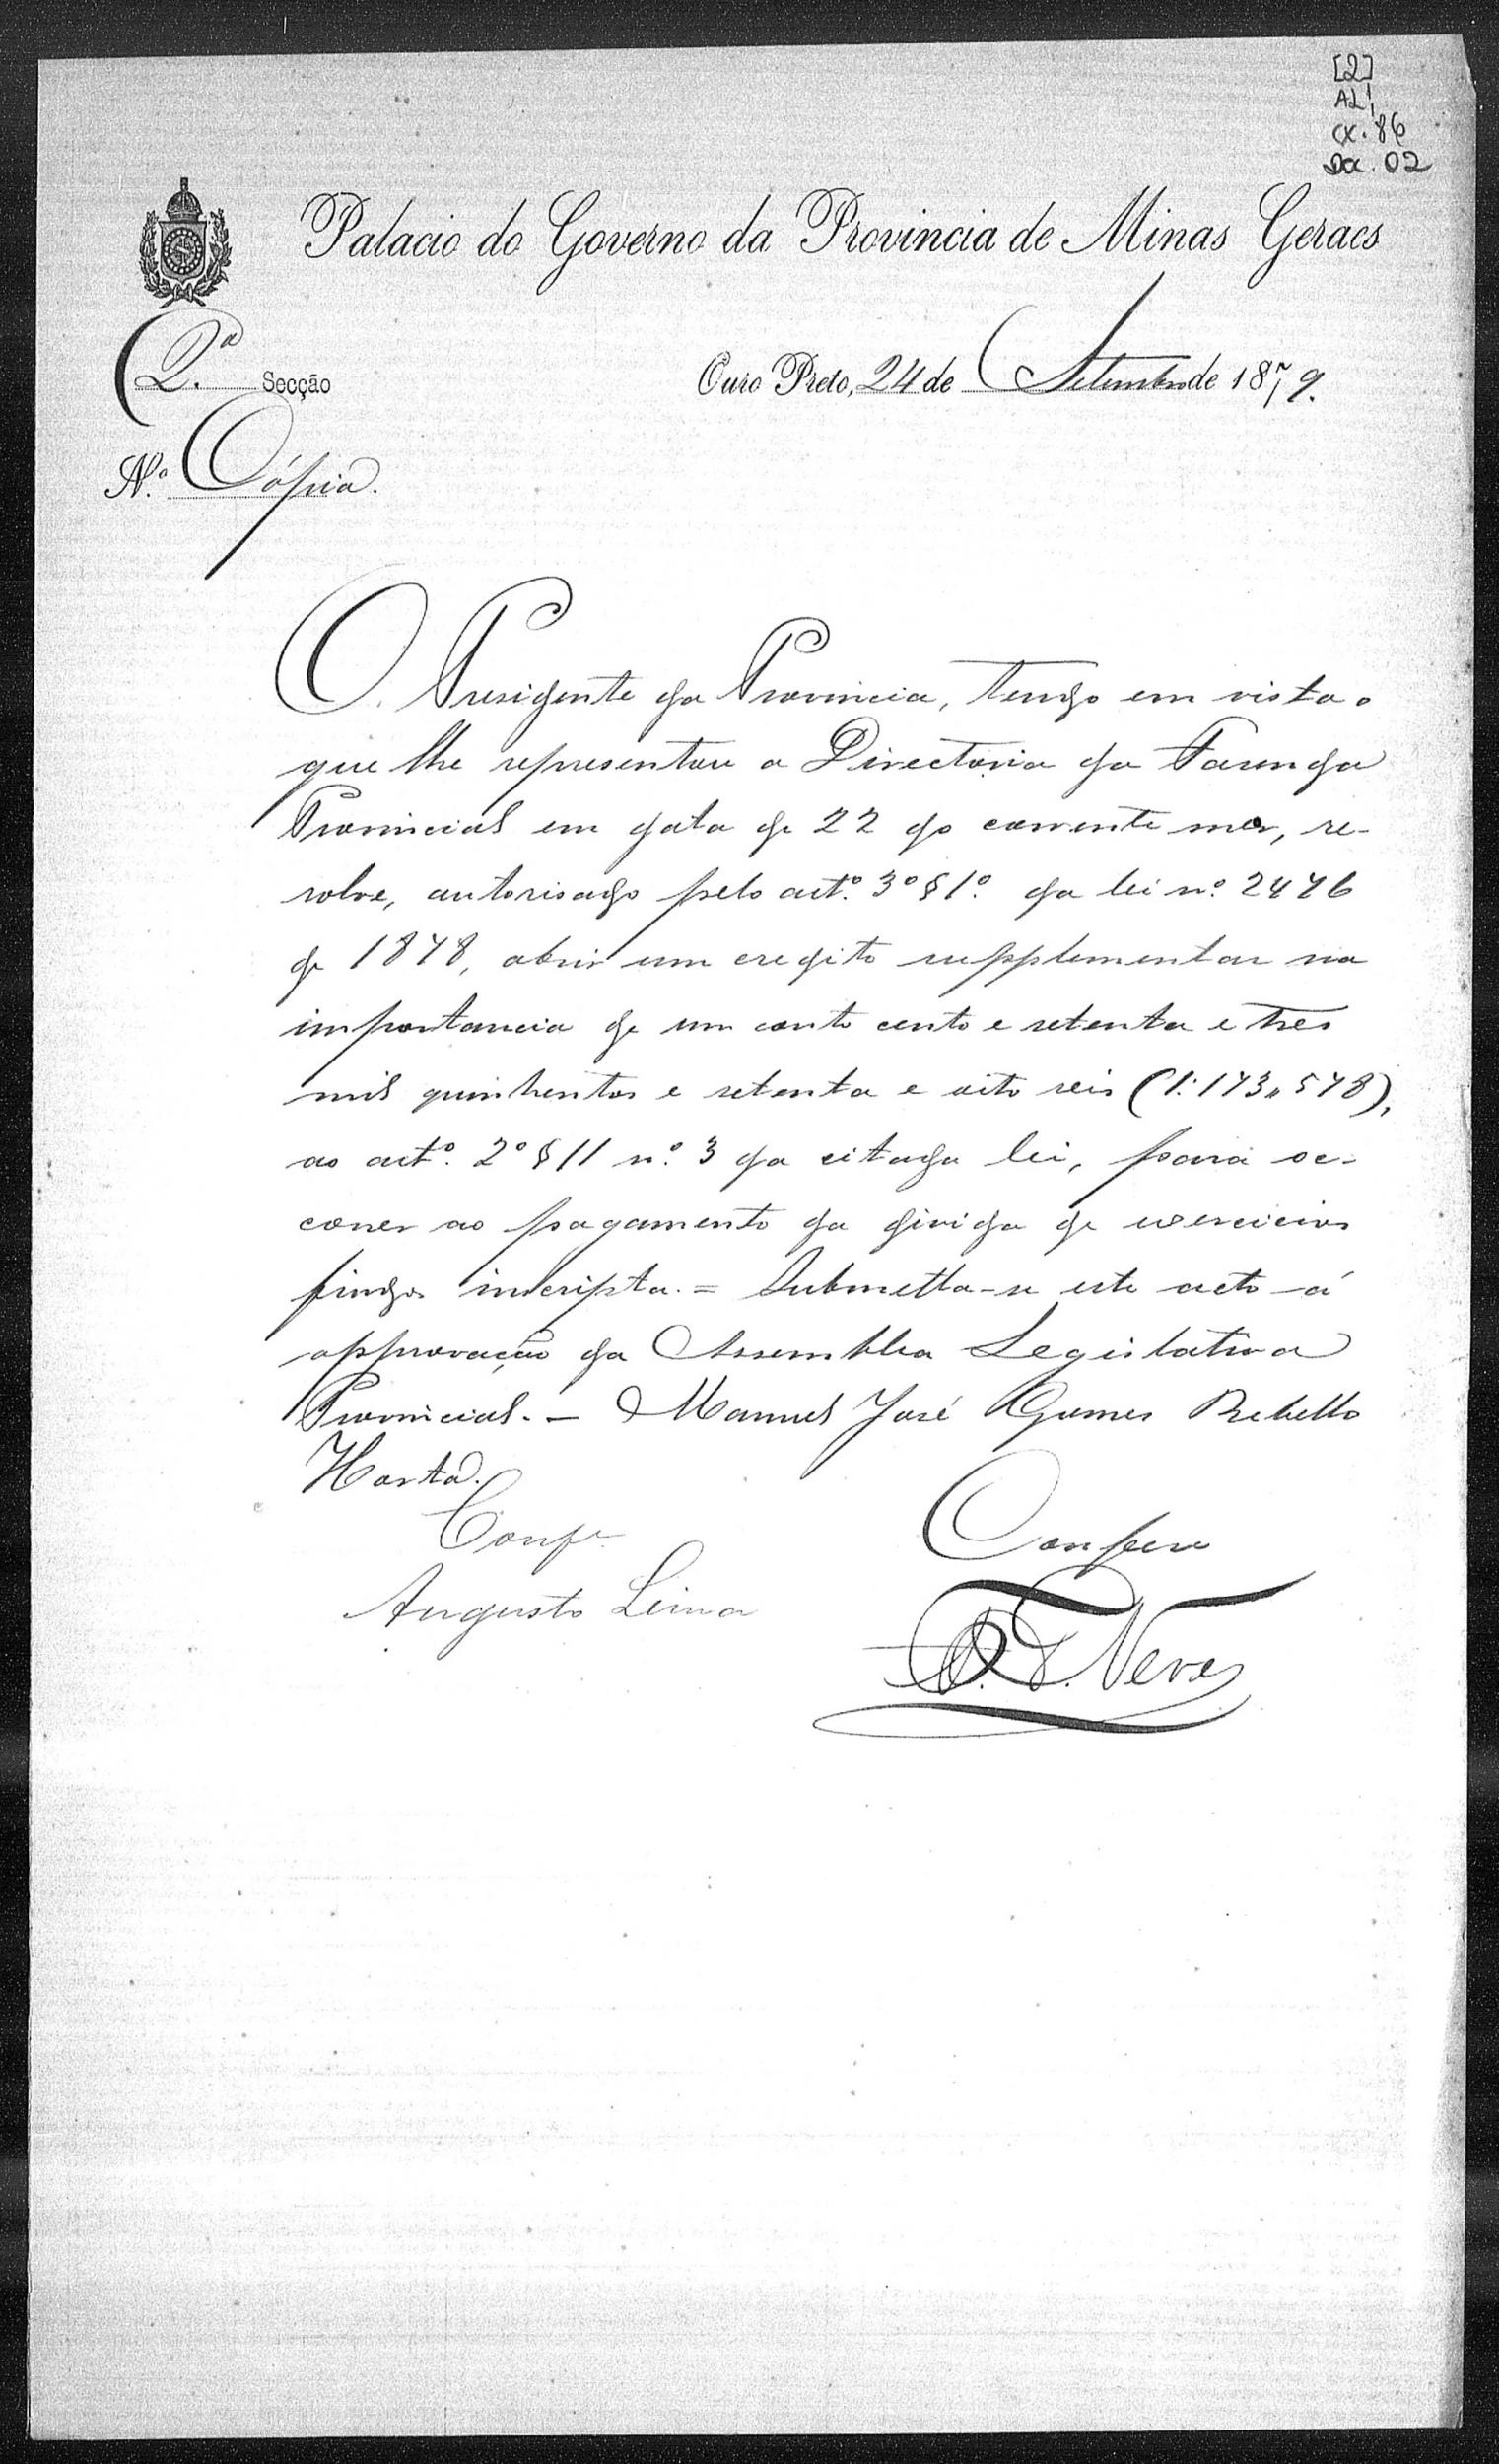 [2]
AL1
CX. 86
Doc. 02
Palacio do Governo da Provincia de Minas Geraes
2.ª Secção
Ouro Preto, 24 de Setembro de 1879.
N.º Cópia.
O Presidente da Provincia, tendo em vista o
que lhe representou a Directoria da Fazenda
Provincial em data de 22 do corrente mez, re-
solve, autorisado pelo art.º 3º § 1º. da lei nº. 2476
de 1878, abrir um credito supplementar na
importancia de um conto cento e setenta e tres
mil quinhentos e setenta e oito reis (1:173„578),
ao artº. 2º § 11 nº. 3 da citada lei, para oc-
correr ao pagamento da divida de exercicios
findos inscripta. = Submetta-se este acto á
approvação da Assemblea Legislativa
Provincial. — Manuel José Gomes Rebello
Horta.
Conf.e
Confere
Augusto Lima
Neves